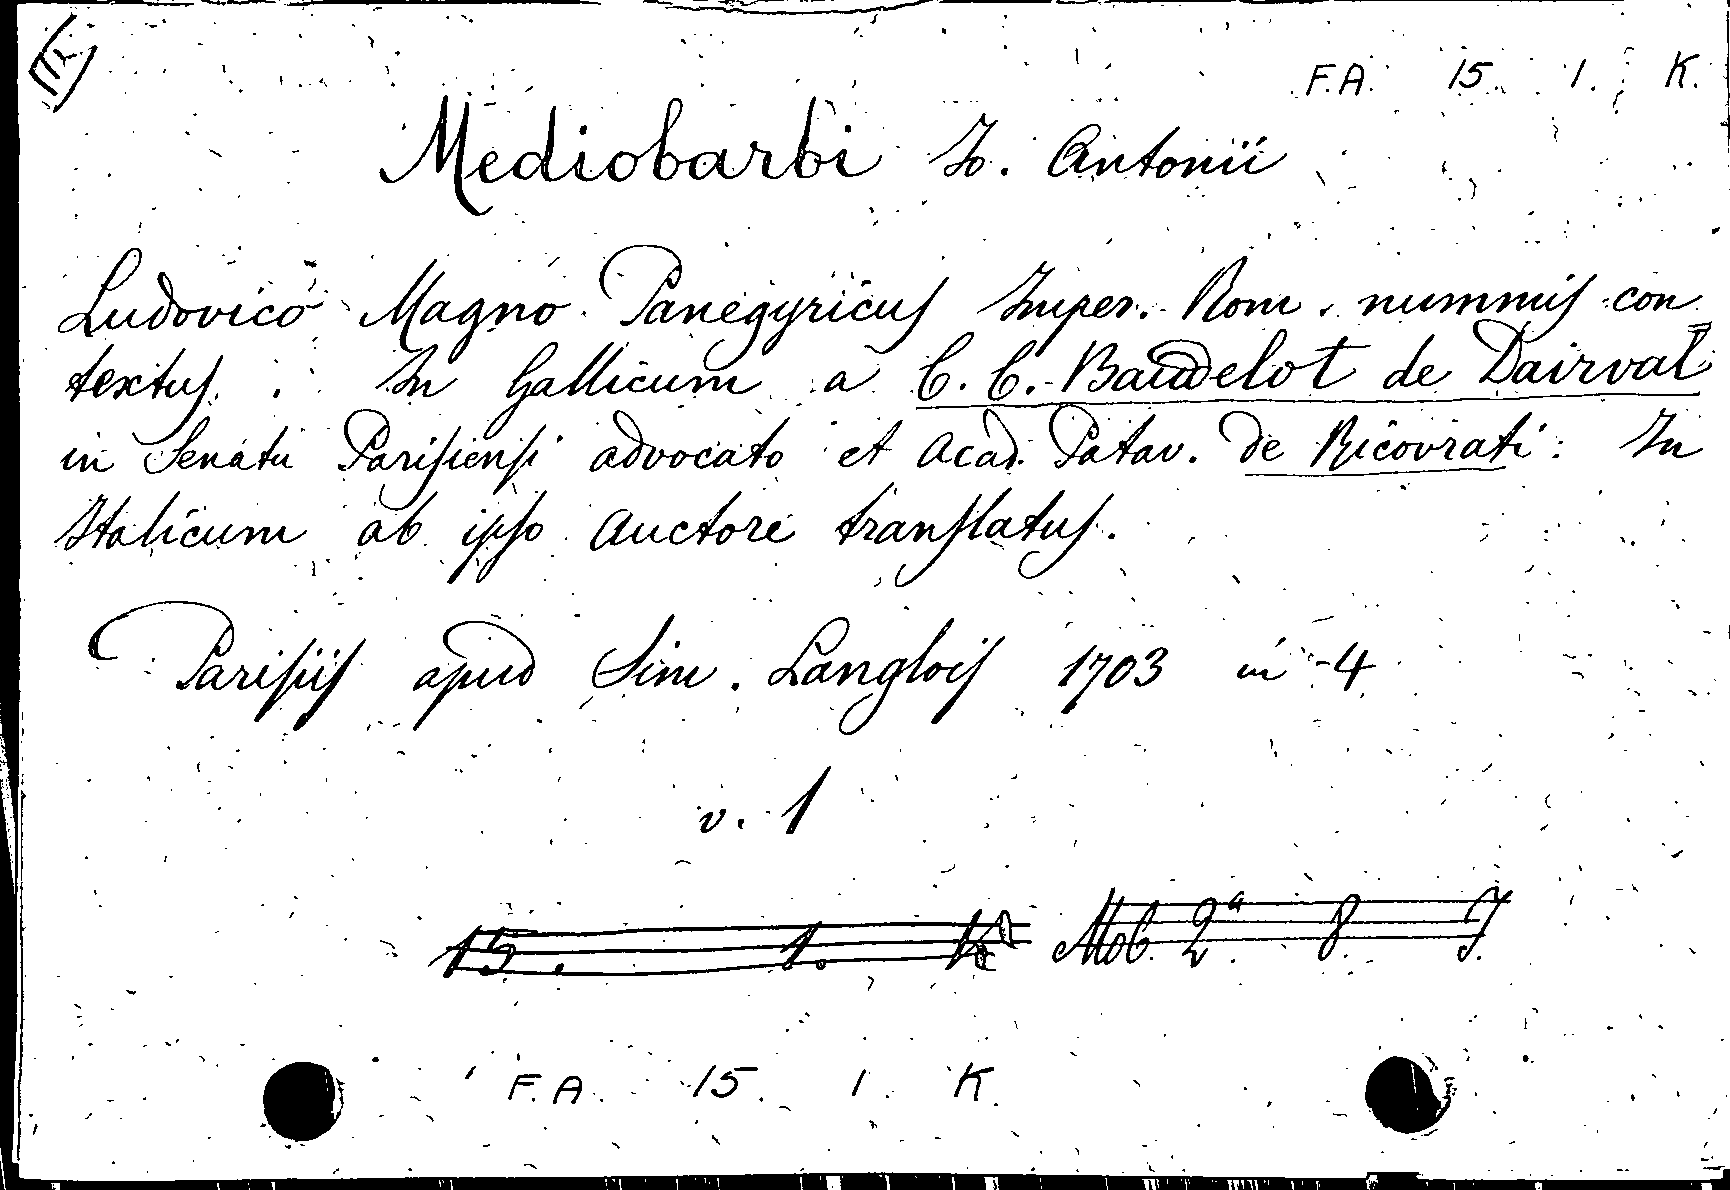 F.A. 15. 1. K.
Mediobarbi Io. Antonii
Ludovico Magno Panegyricus Imper. Rom. nummis con
textus. In Gallicum a C. C. Baudelot de Dairval
in Senatu Parisiensi advocato et Acad. Patav. de Ricovrati: In
Italicum ab ipso Auctore translatus.
Parisiis apud Sim. Langlois 1703 in-4
v. 1
15. 1. K Mob. 2ª 8. J.
F.A. 15. 1. K.